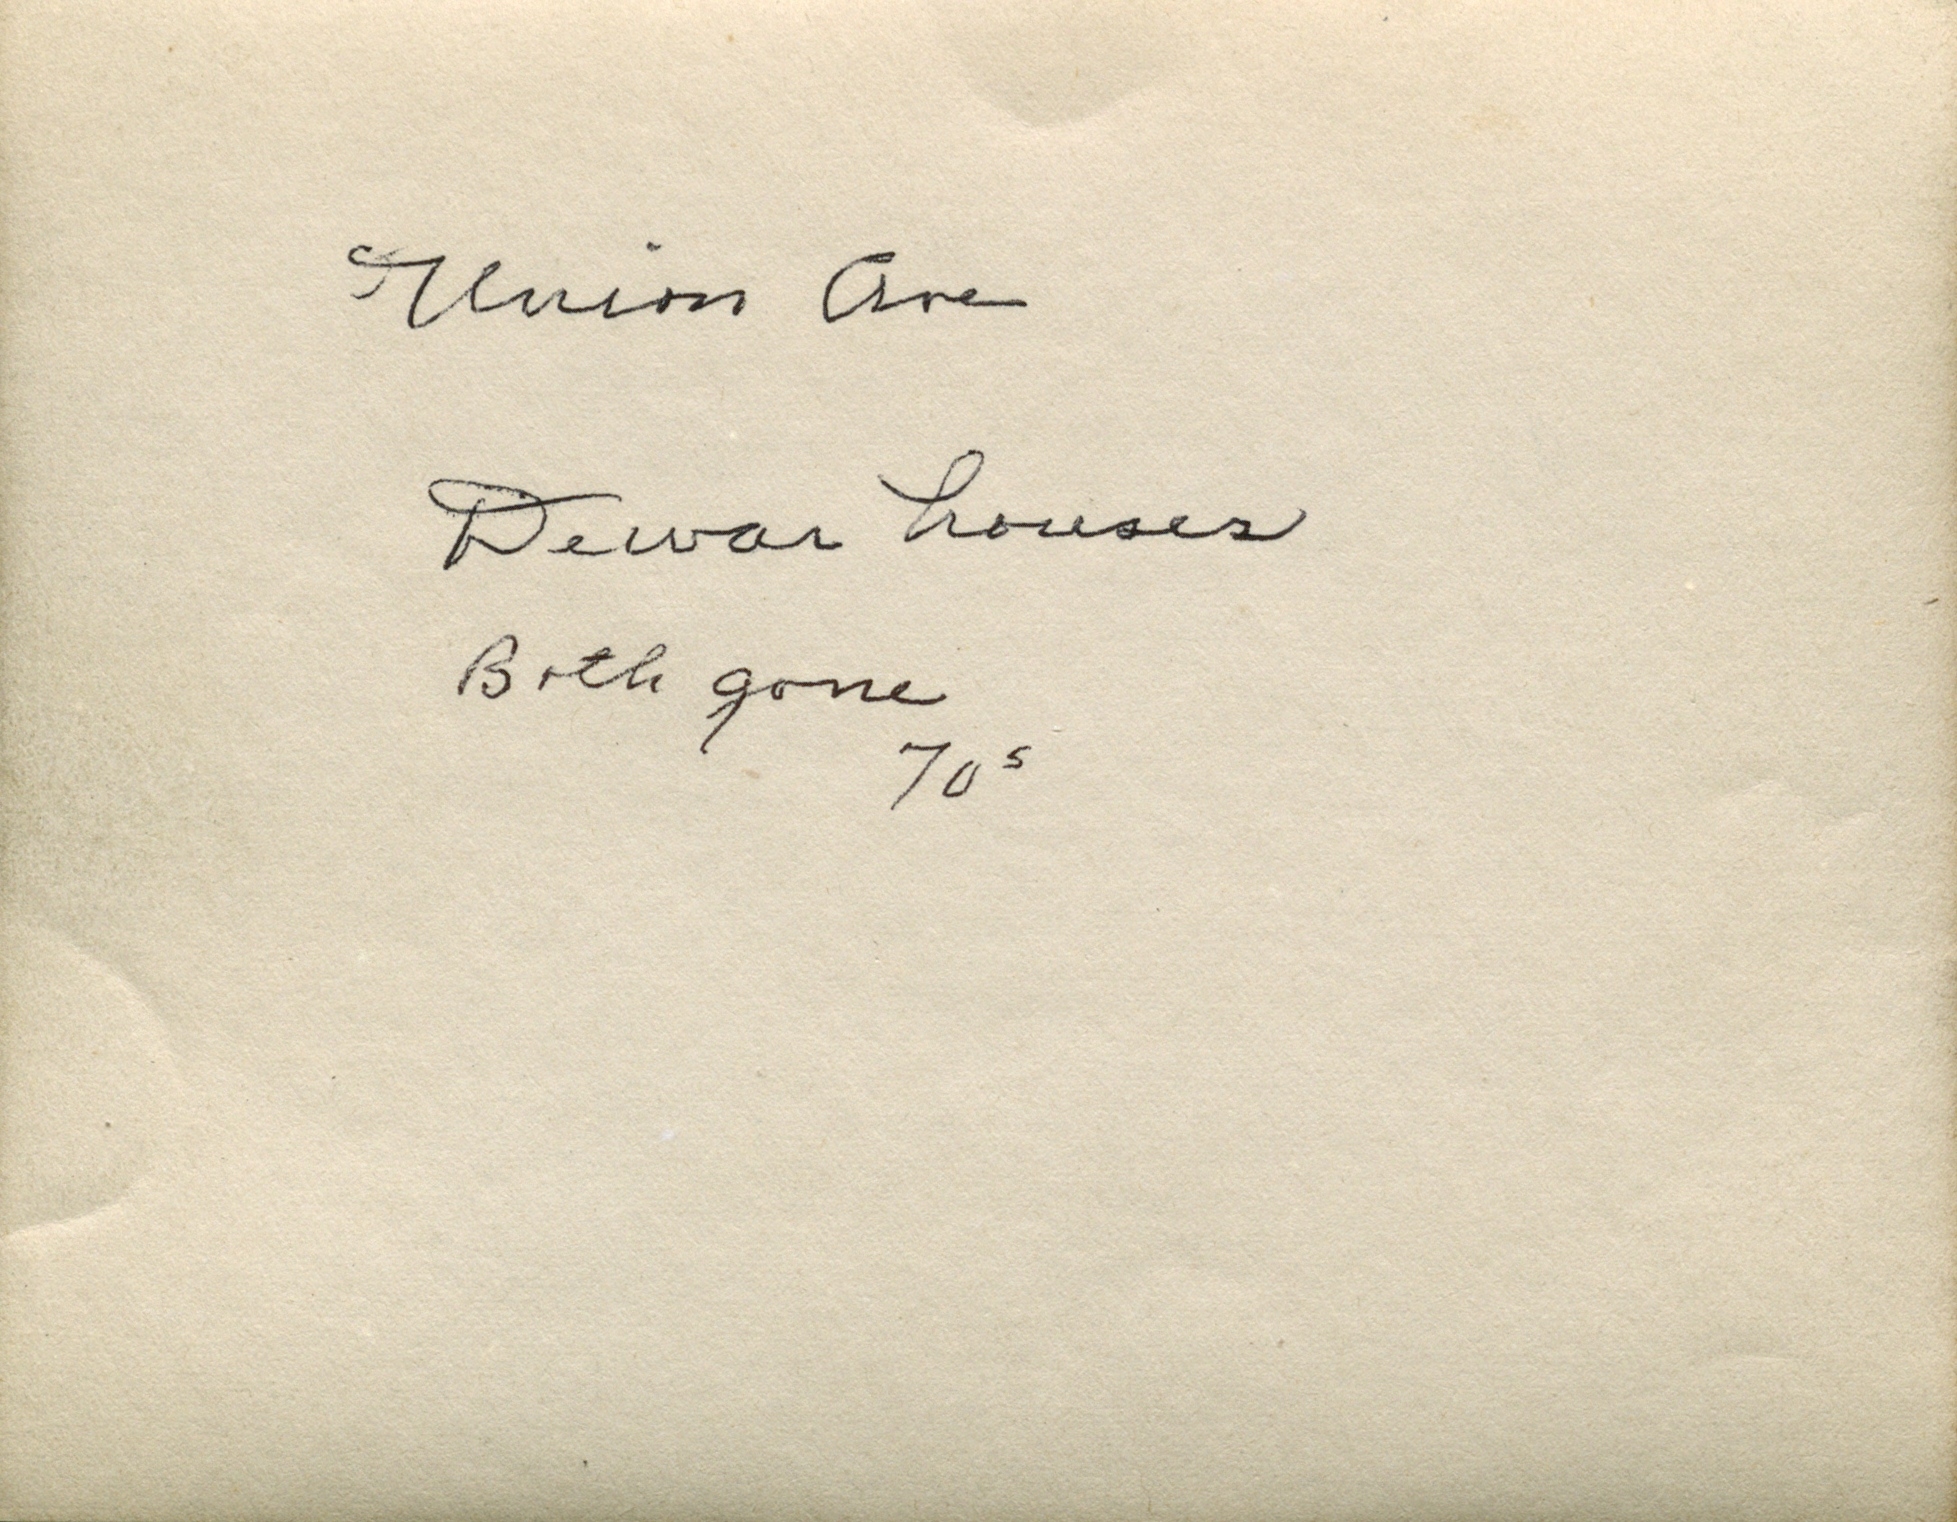 Union Ave
Dewar houses
Both gone
70s